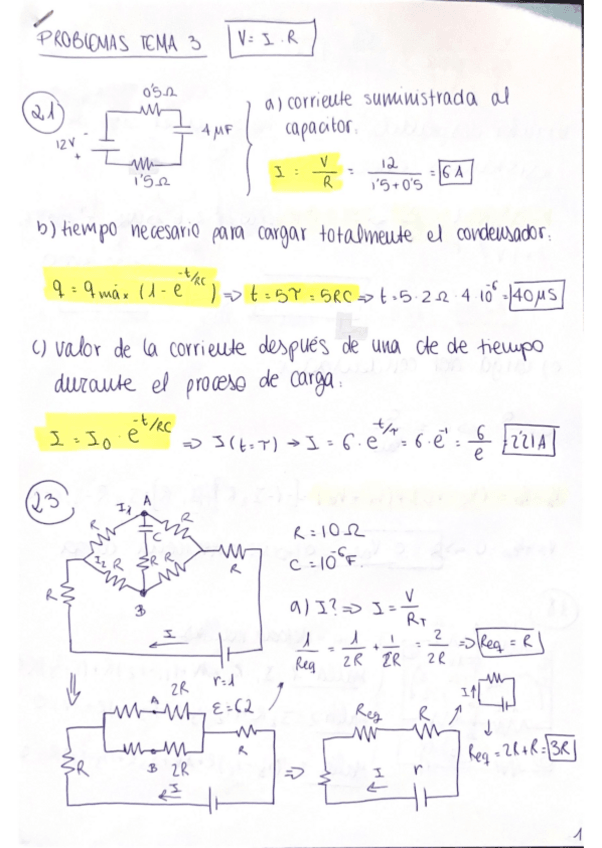 PROBLEMAS TEMA 3 V = I · R
21
0'5 Ω
12V - +
4 μF
1'5 Ω
a) corriente suministrada al
capacitor.
I = V/R = 12/(1'5+0'5) = 6 A
b) tiempo necesario para cargar totalmente el condensador.
q = q máx (1 - e^(-t/RC)) => t = 5τ = 5RC => t = 5 · 2 Ω · 4 10^-6 = 40 μS
c) valor de la corriente después de una cte de tiempo
durante el proceso de carga.
I = I0 · e^(-t/RC) => I (t=τ) → I = 6 · e^(-t/τ) = 6 · e^-1 = 6/e = 2'21 A
23
A
I1
R R
C
I2 R R R
R
B
R
I
r=1
ε=62
R = 10 Ω
C = 10^-6 F.
a) I? => I = V/RT
1/Req = 1/2R + 1/2R = 2/2R => Req = R
2R
A
B
2R
R
R
I
=>
Req R
I r
I
Req = 2R + R = 3R
1